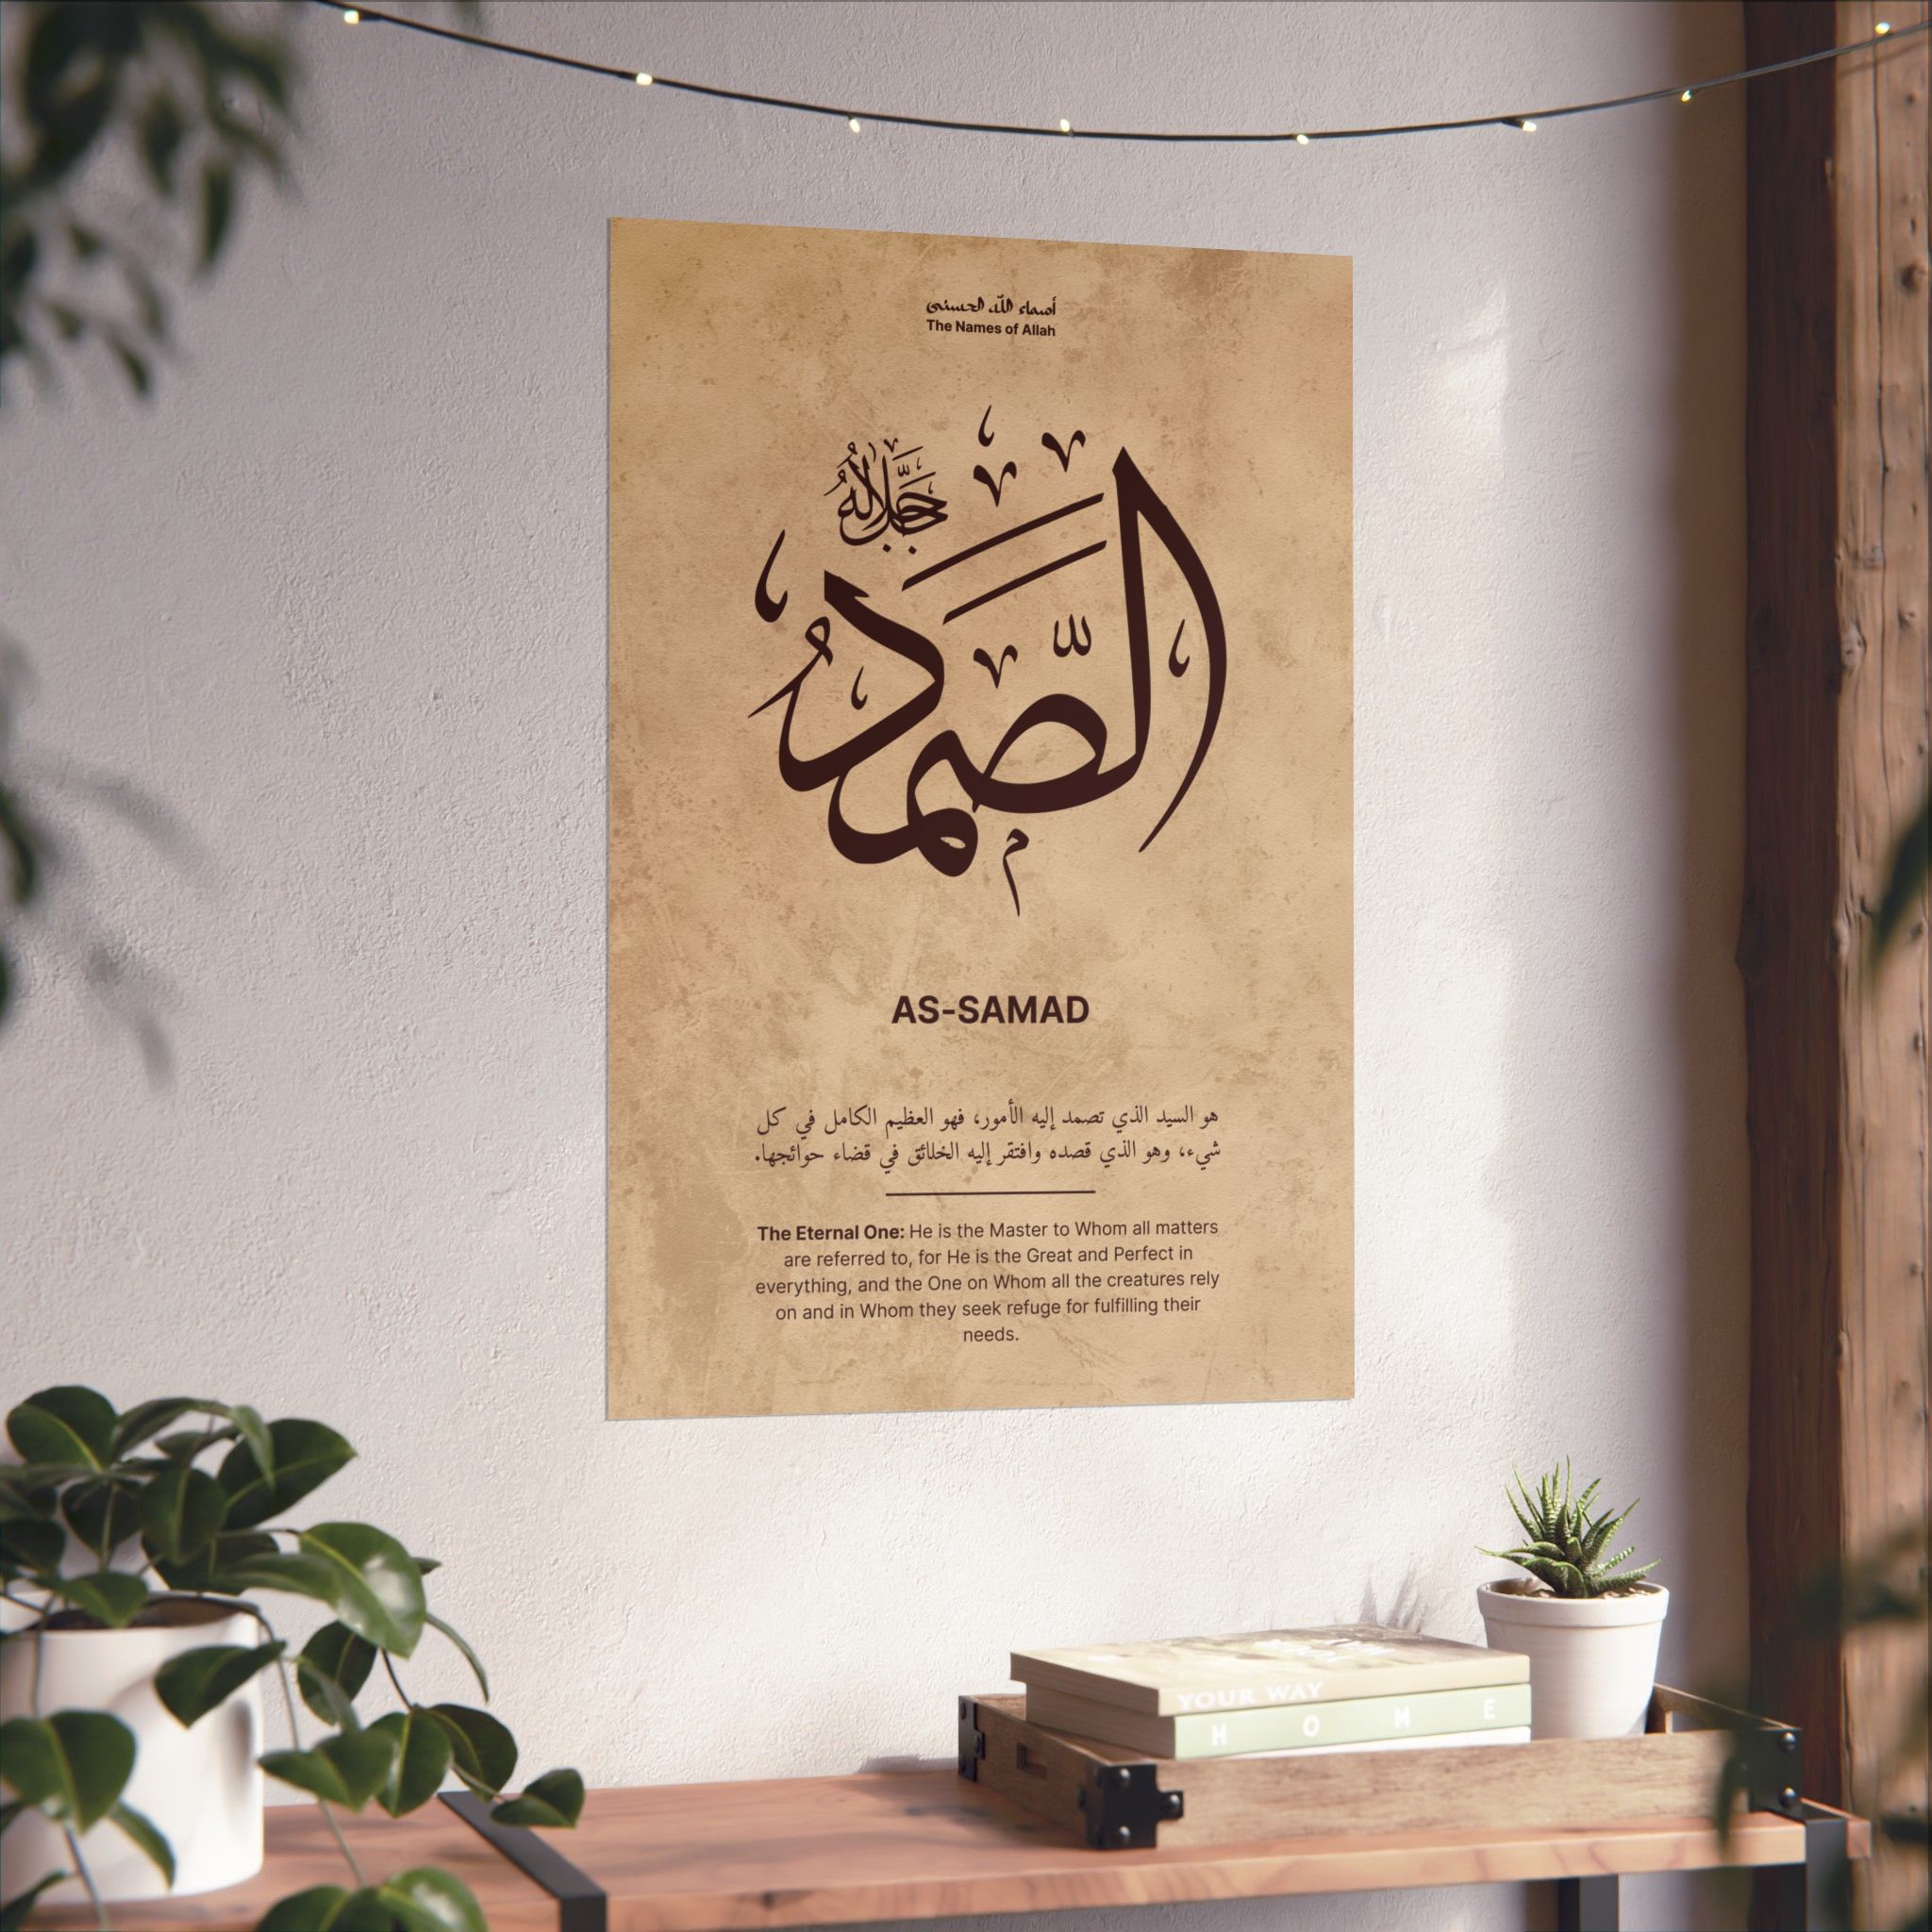 أسماء الله الحسنى
The Names of Allah
جَلَّ جَلَالُهُ
الصَّمَدُ
AS-SAMAD
هو السيد الذي تصمد إليه الأمور، فهو العظيم الكامل في كل
شيء، وهو الذي قصده وافتقر إليه الخلائق في قضاء حوائجها.
The Eternal One: He is the Master to Whom all matters
are referred to, for He is the Great and Perfect in
everything, and the One on Whom all the creatures rely
on and in Whom they seek refuge for fulfilling their
needs.
YOUR WAY
HOME